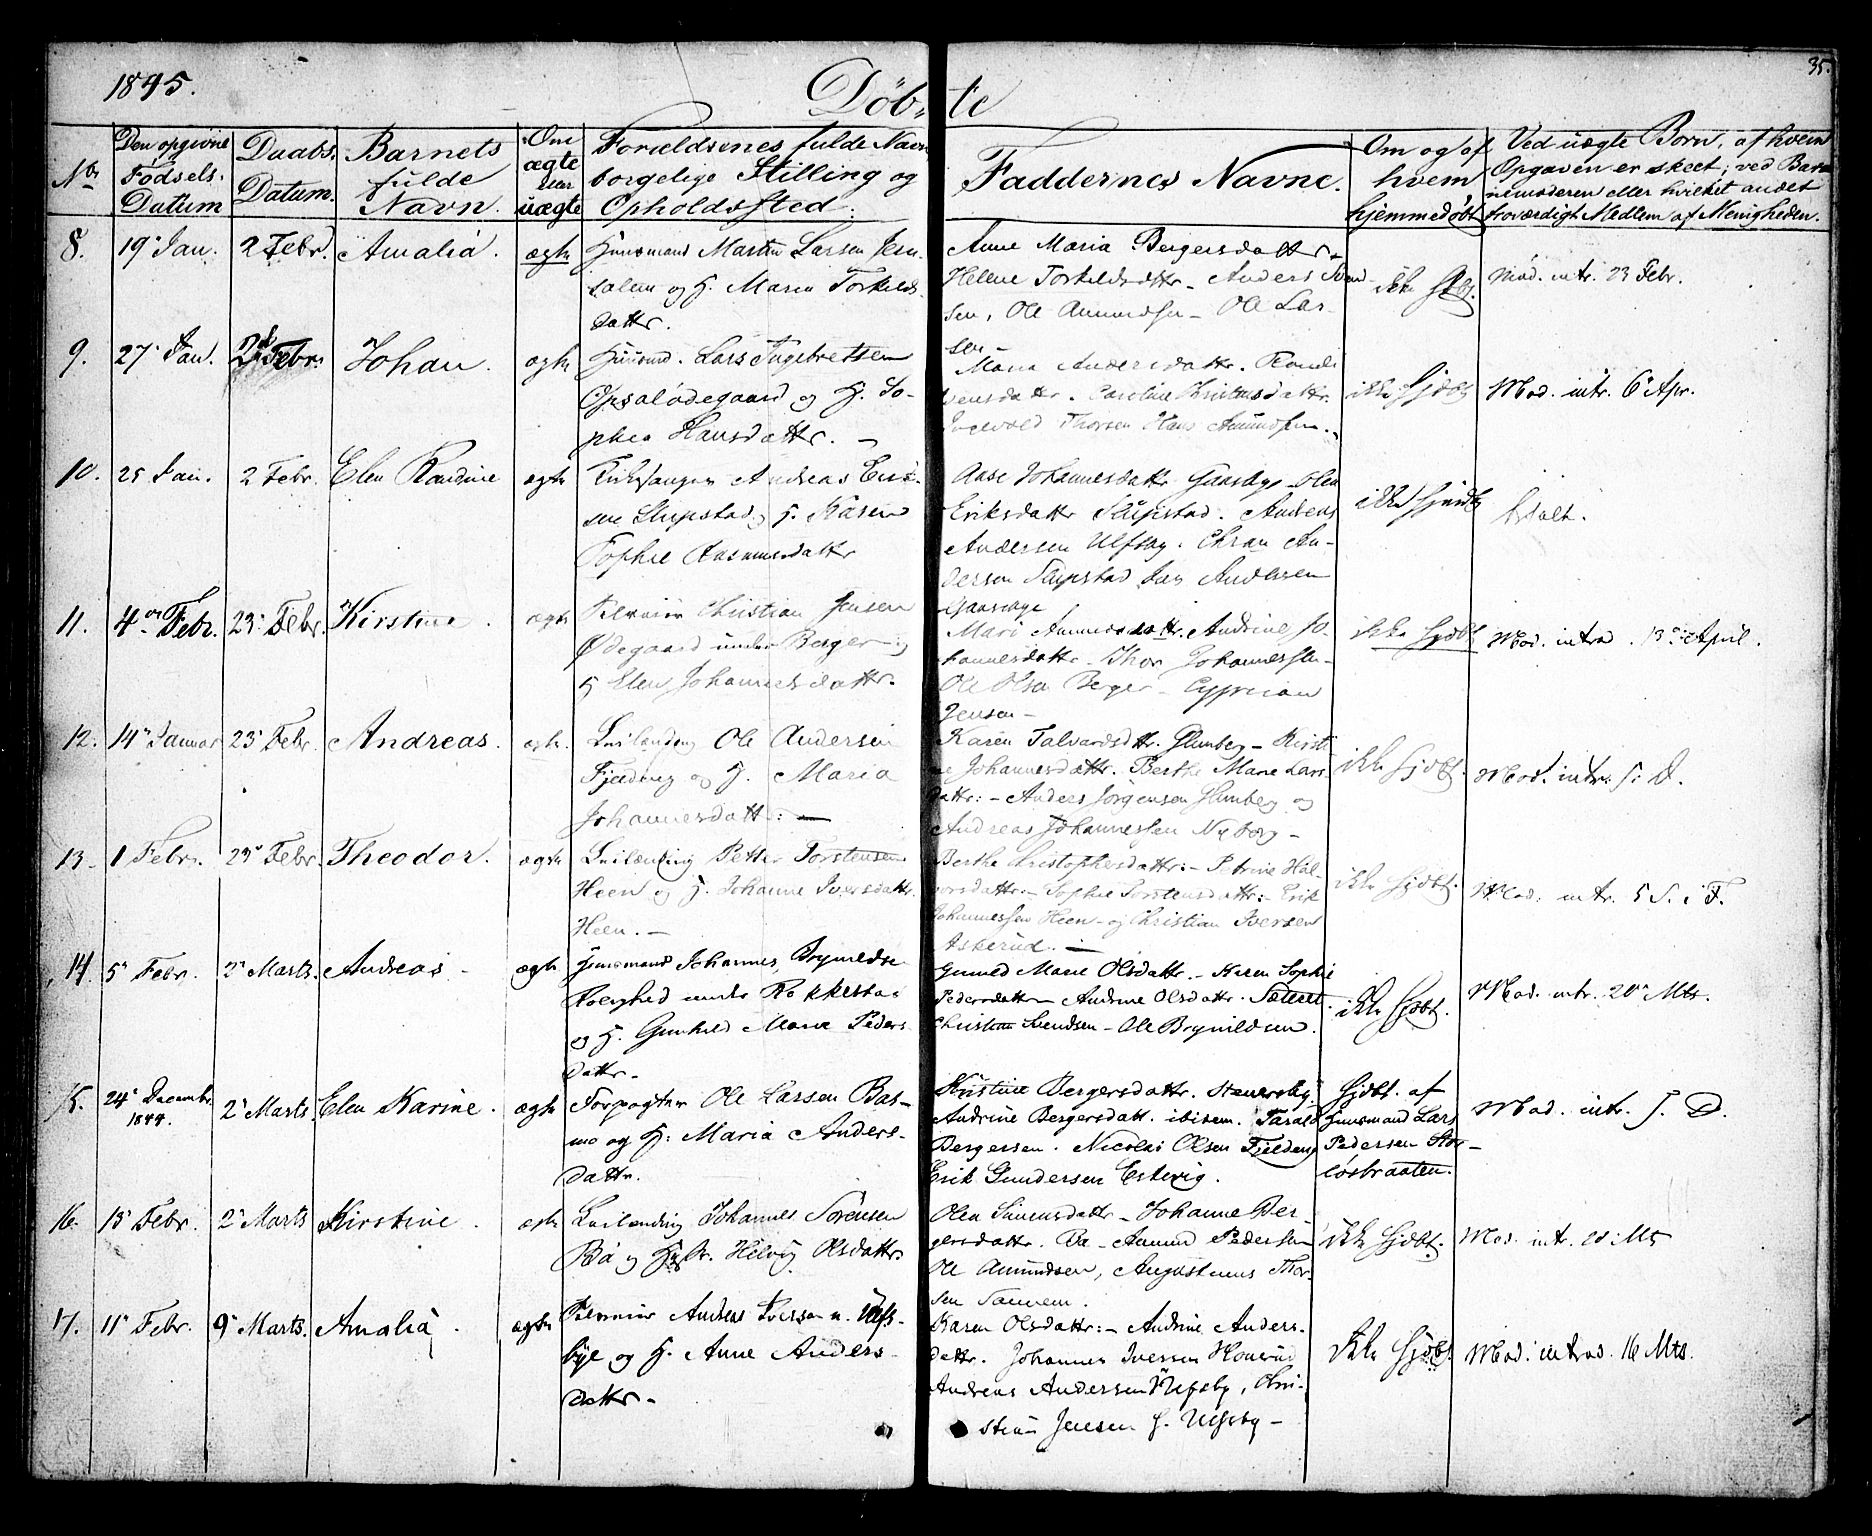 1845.
Döbte
35.
No
Den opgivne Fødsels. Datum
Daabs. Datum.
Barnets fulde Navn.
Om ægte eller uægte
Forældrenes fulde Navn borgelige Stilling og Opholdssted.
Faddernes Navne.
Om og af hvem hjemmedøbt
Ved uægte Børn, af hvem Opgaven er skeet; ved Barnemoderen eller hvilket andet troværdigt Medlem af Menigheden.
8. 19 Jan. 2 Febr. Amalia. ægte
Huusmand Martin Larsen Jeru-
salem og H. Maria Torkilds-
datter.
Anne Maria Bergersdattr -
Hellene Torkildsdattr - Anders Svend
sen, Ole Amundsen - Ole Lar-
sen -
ikke
Mod. intr. 23 Febr.
9. 27 Jan. 2 Febr. Johan. ægte
Huusmd. Lars Ingebretsen
Opsalødegaard og H. So-
phia Hansdattr. -
Maria Andersdattr.
Caroline Christensdattr.
Ingvold Thorsen Hans Amundsen.
ikke Hjdbt
Mod. intr. 6 Apr.
10. 25 Jan. 2 Febr. Elen Randine ægte
Kirkesanger Andreas Erik-
sen Slupstad og H. Karen
Sophie Rasmusdattr
Aase Johannesdattr Gaasbye - Olea
Eriksdattr Slupstad. Andreas
Andersen Ulfsby. Chran An-
dersen Slupstad Andersen
Gaasbye
ikke Hjmdb
11. 4 Febr. 23 Febr. Kirstine. ægte
Christian Jensen
Ødegaard under Berger og
H Elen Johannesdattr.
Mari Amundsdattr. Andrine Jo-
hannesdattr - Thor Johannessen
Ole Olsen Berger - Cyprian
Jensen -
ikke Hjdbt
Mod. introd. 13 April.
12. 14 Januar 23 Febr. Andreas. ægte
Leilænding Ole Andersen
og H. Maria
Johannesdattr: -
Karen Halvardsdttr. Glenberg - Kirsti-
ne Johannesdattr. Berthe Marie Lars
dattr: - Anders Jørgensen Glenberg og
Andreas Johannessen Nyborg -
ikke Hjdbt.
Mod. intr. s. D.
13. 1 Febr. 23 Febr. Theodor. ægte
Leilænding Petter Torstensen
Heen og H. Johanne Iversdattr.
Heen. -
Berthe Christophersdattr: - Petrine Hal-
vorsdattr. - Sophie Torstensdattr: - Erik
Johannessen Heen - og Christian Iversen
Askerud. -
ikke Hjdbt.
Mod. intr. 5 S. i F.
14. 5 Febr. 2 Marts. Andreas - ægte
Huusmand Johannes Brynildse
under Rakkestad
og H. Gunhild Maria Peders-
dattr.
Gunild Marie Olsdattr. - Karen Sophie
Pedersdattr - Andrine Olsdattr. Sæteret
Christen Svendsen - Ole Brynildsen.
ikke Hjdbt.
Mod. intr. 20 Mts.
15. 24 Decembr. 1844. 2 Marts. Elen Karine. ægte
Forpagter Ole Larsen Bas-
mo og H: Maria Anders-
dattr.
Kristine Bergersdattr. Stenersby.
Andrine Bergersdatt. ibidem. Tarald
Bergersen. Nicolai Olsen
Erik Gundersen Estevig.
Hjdbt. af
Huusmand Lars
Pedersen Stor-
løsbraaten.
Mod. intr. s. D.
16. 15 Febr. 2 Marts Kirstine. ægte
Leilænding Johannes Sörensen
Bö og Hstr. Helvig Olsdattr.
Olea Simensdattr - Johanne Ber-
gersdattr. Bø - Amund Pedersen
Ole Amundsen, Augustinus Thor-
sen
ikke Hjdbt.
Mod. intr. Mts
17. 11 Febr. 9 Marts. Amalia. ægte
Andreas Iversen u. Ulfs-
bye og H. Anne Anders-
dattr -
Karen Olsdattr: - Andrine Anders-
dattr. Johannes Iversen
Andreas Andersen Ulfsby, Chri-
stian Jensen H. Ulfsby -
ikke Hjdbt.
Mod. introd. 16 Mts.